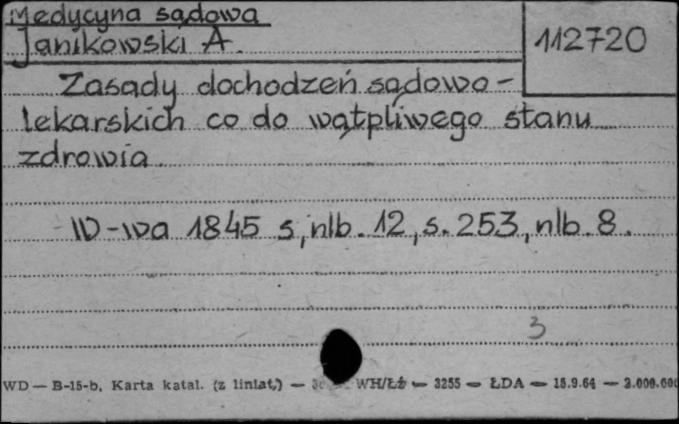 Medycyna sądowa
Janikowski A.
112720
Zasady dochodzeń sądowo-
lekarskich co do wątpliwego stanu
zdrowia
W-wa 1845 s, nlb. 12, s. 253, nlb. 8.
3
WD — B-15-b, Karta katal. (z liniat.) — WH/Łż — 3255 — ŁDA — 15.9.64 — 3.000.000